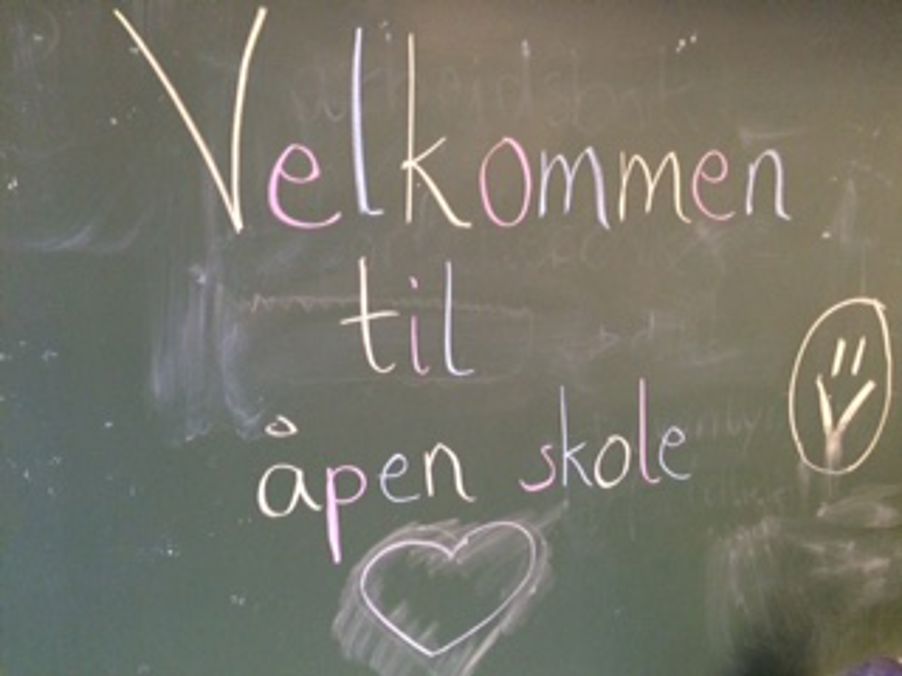 Velkommen
til
åpen skole